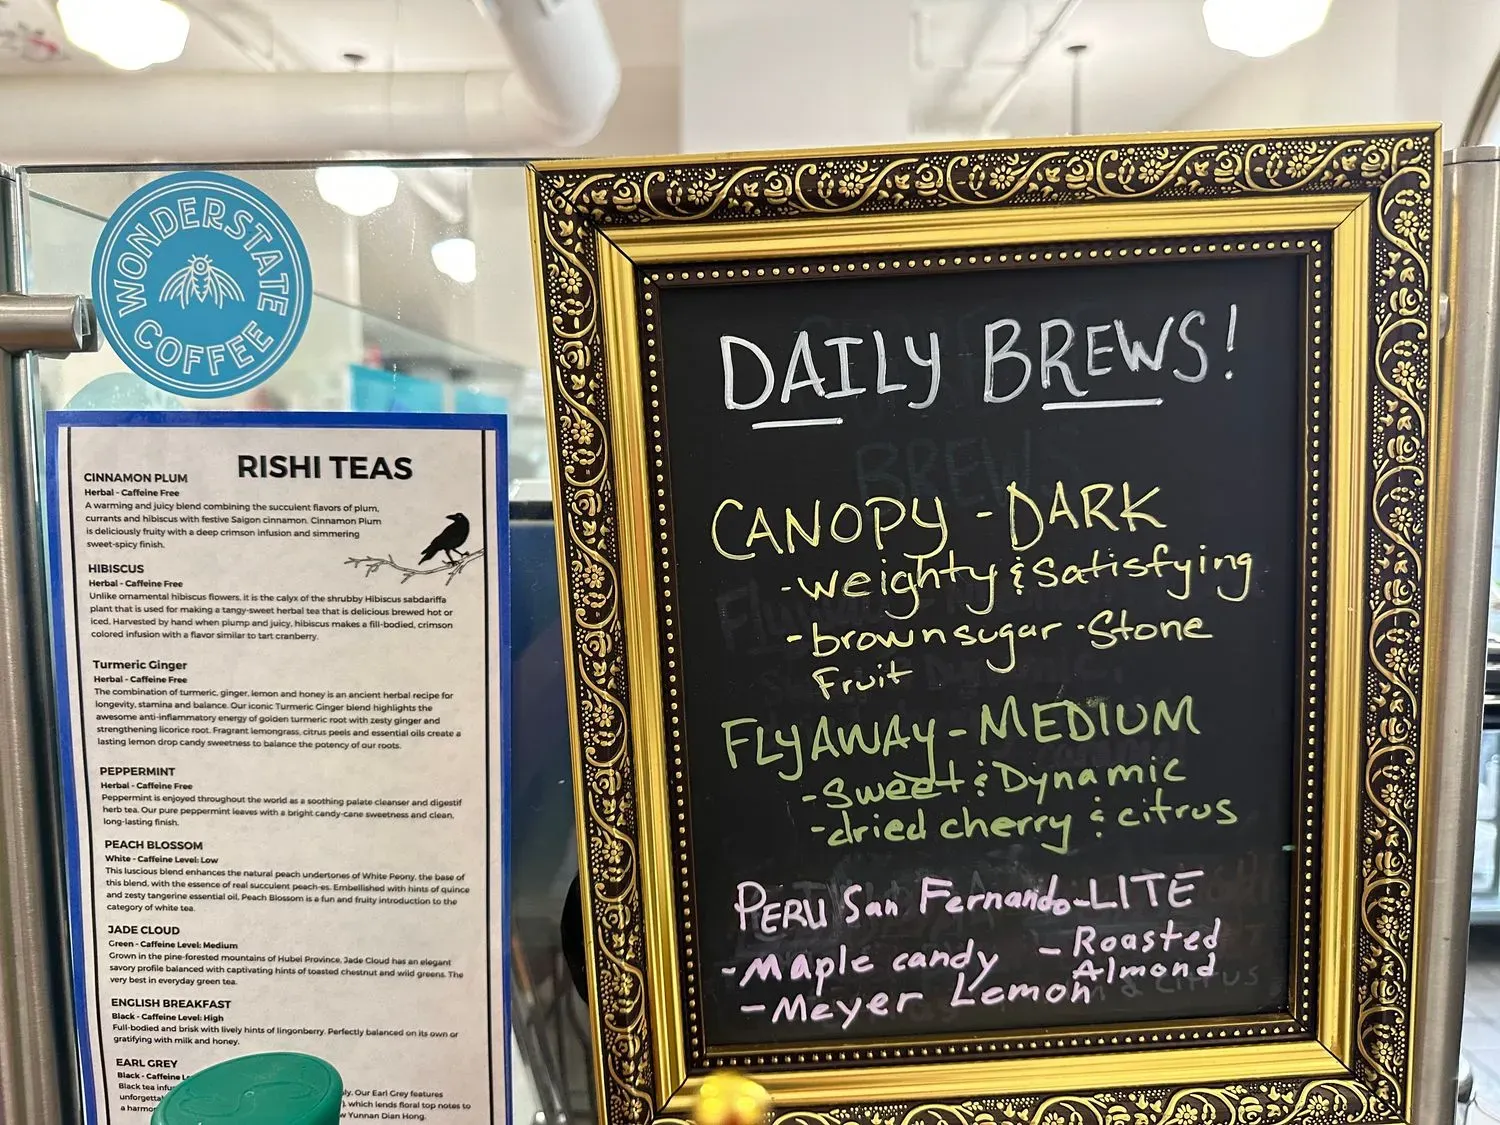 WONDERSTATE
COFFEE
RISHI TEAS
CINNAMON PLUM
Herbal - Caffeine Free
A warming and juicy blend combining the succulent flavors of plum,
currants and hibiscus with festive Saigon cinnamon. Cinnamon Plum
is deliciously fruity with a deep crimson infusion and simmering
sweet-spicy finish.
HIBISCUS
Herbal - Caffeine Free
Unlike ornamental hibiscus flowers, it is the calyx of the shrubby Hibiscus sabdariffa
plant that is used for making a tangy-sweet herbal tea that is delicious brewed hot or
iced. Harvested by hand when plump and juicy, hibiscus makes a fill-bodied, crimson
colored infusion with a flavor similar to tart cranberry.
Turmeric Ginger
Herbal - Caffeine Free
The combination of turmeric, ginger, lemon and honey is an ancient herbal recipe for
longevity, stamina and balance. Our iconic Turmeric Ginger blend highlights the
awesome anti-inflammatory energy of golden turmeric root with zesty ginger and
strengthening licorice root. Fragrant lemongrass, citrus peels and essential oils create a
lasting lemon drop candy sweetness to balance the potency of our roots.
PEPPERMINT
Herbal - Caffeine Free
Peppermint is enjoyed throughout the world as a soothing palate cleanser and digestif
herb tea. Our pure peppermint leaves with a bright candy-cane sweetness and clean,
long-lasting finish.
PEACH BLOSSOM
White - Caffeine Level: Low
This luscious blend enhances the natural peach undertones of White Peony, the base of
this blend, with the essence of real succulent peach-es. Embellished with hints of quince
and zesty tangerine essential oil, Peach Blossom is a fun and fruity introduction to the
category of white tea.
JADE CLOUD
Green - Caffeine Level: Medium
Grown in the pine-forested mountains of Hubei Province, Jade Cloud has an elegant
savory profile balanced with captivating hints of toasted chestnut and wild greens. The
very best in everyday green tea.
ENGLISH BREAKFAST
Black - Caffeine Level: High
Full-bodied and brisk with lively hints of lingonberry. Perfectly balanced on its own or
gratifying with milk and honey.
EARL GREY
Black - Caffeine
Black tea Our Earl Grey features
which lends floral top notes to
a Yunnan Dian Hong.
DAILY BREWS!
CANOPY - DARK
- weighty & Satisfying
- brown sugar · Stone
Fruit
FLYAWAY - MEDIUM
- Sweet & Dynamic
- dried cherry & citrus
PERU San Fernando - LITE
- Maple candy - Roasted
Almond
- Meyer Lemon